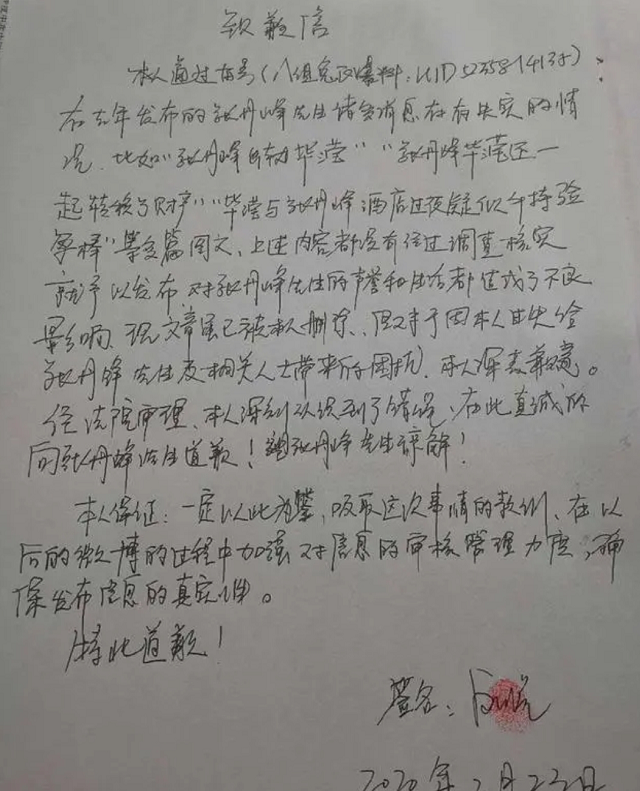 致歉信
本人通过账号(八组兔区爆料,UID 5235814137)
在去年发布的张丹峰先生诸多消息存在失实的情
况,比如"张丹峰 毕滢""张丹峰毕滢还一
起转移了财产""毕滢与张丹峰酒店过夜疑似
"等多篇图文,上述内容都没有经过调查核实
就予以发布,对张丹峰先生的声誉和生活都造成了不良
影响,现文章虽已被本人删除,但对于因本人 失给
张丹峰先生及相关人士带来的困扰,本人深表歉意。
经法院审理,本人深刻认识到了错误,在此真诚的
向张丹峰先生道歉!望张丹峰先生谅解!
本人保证:一定以此为鉴,吸取这次事情的教训,在以
后的微博的过程中加强对信息的审核管理力度,确
保发布信息的真实性。
特此道歉!
签名:
2020年 月23日